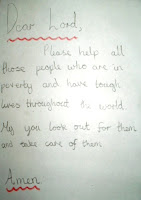 Dear Lord,
Please help all
those people who are in
poverty and have tough
lives throughout the world.
May you look out for them
and take care of them
Amen